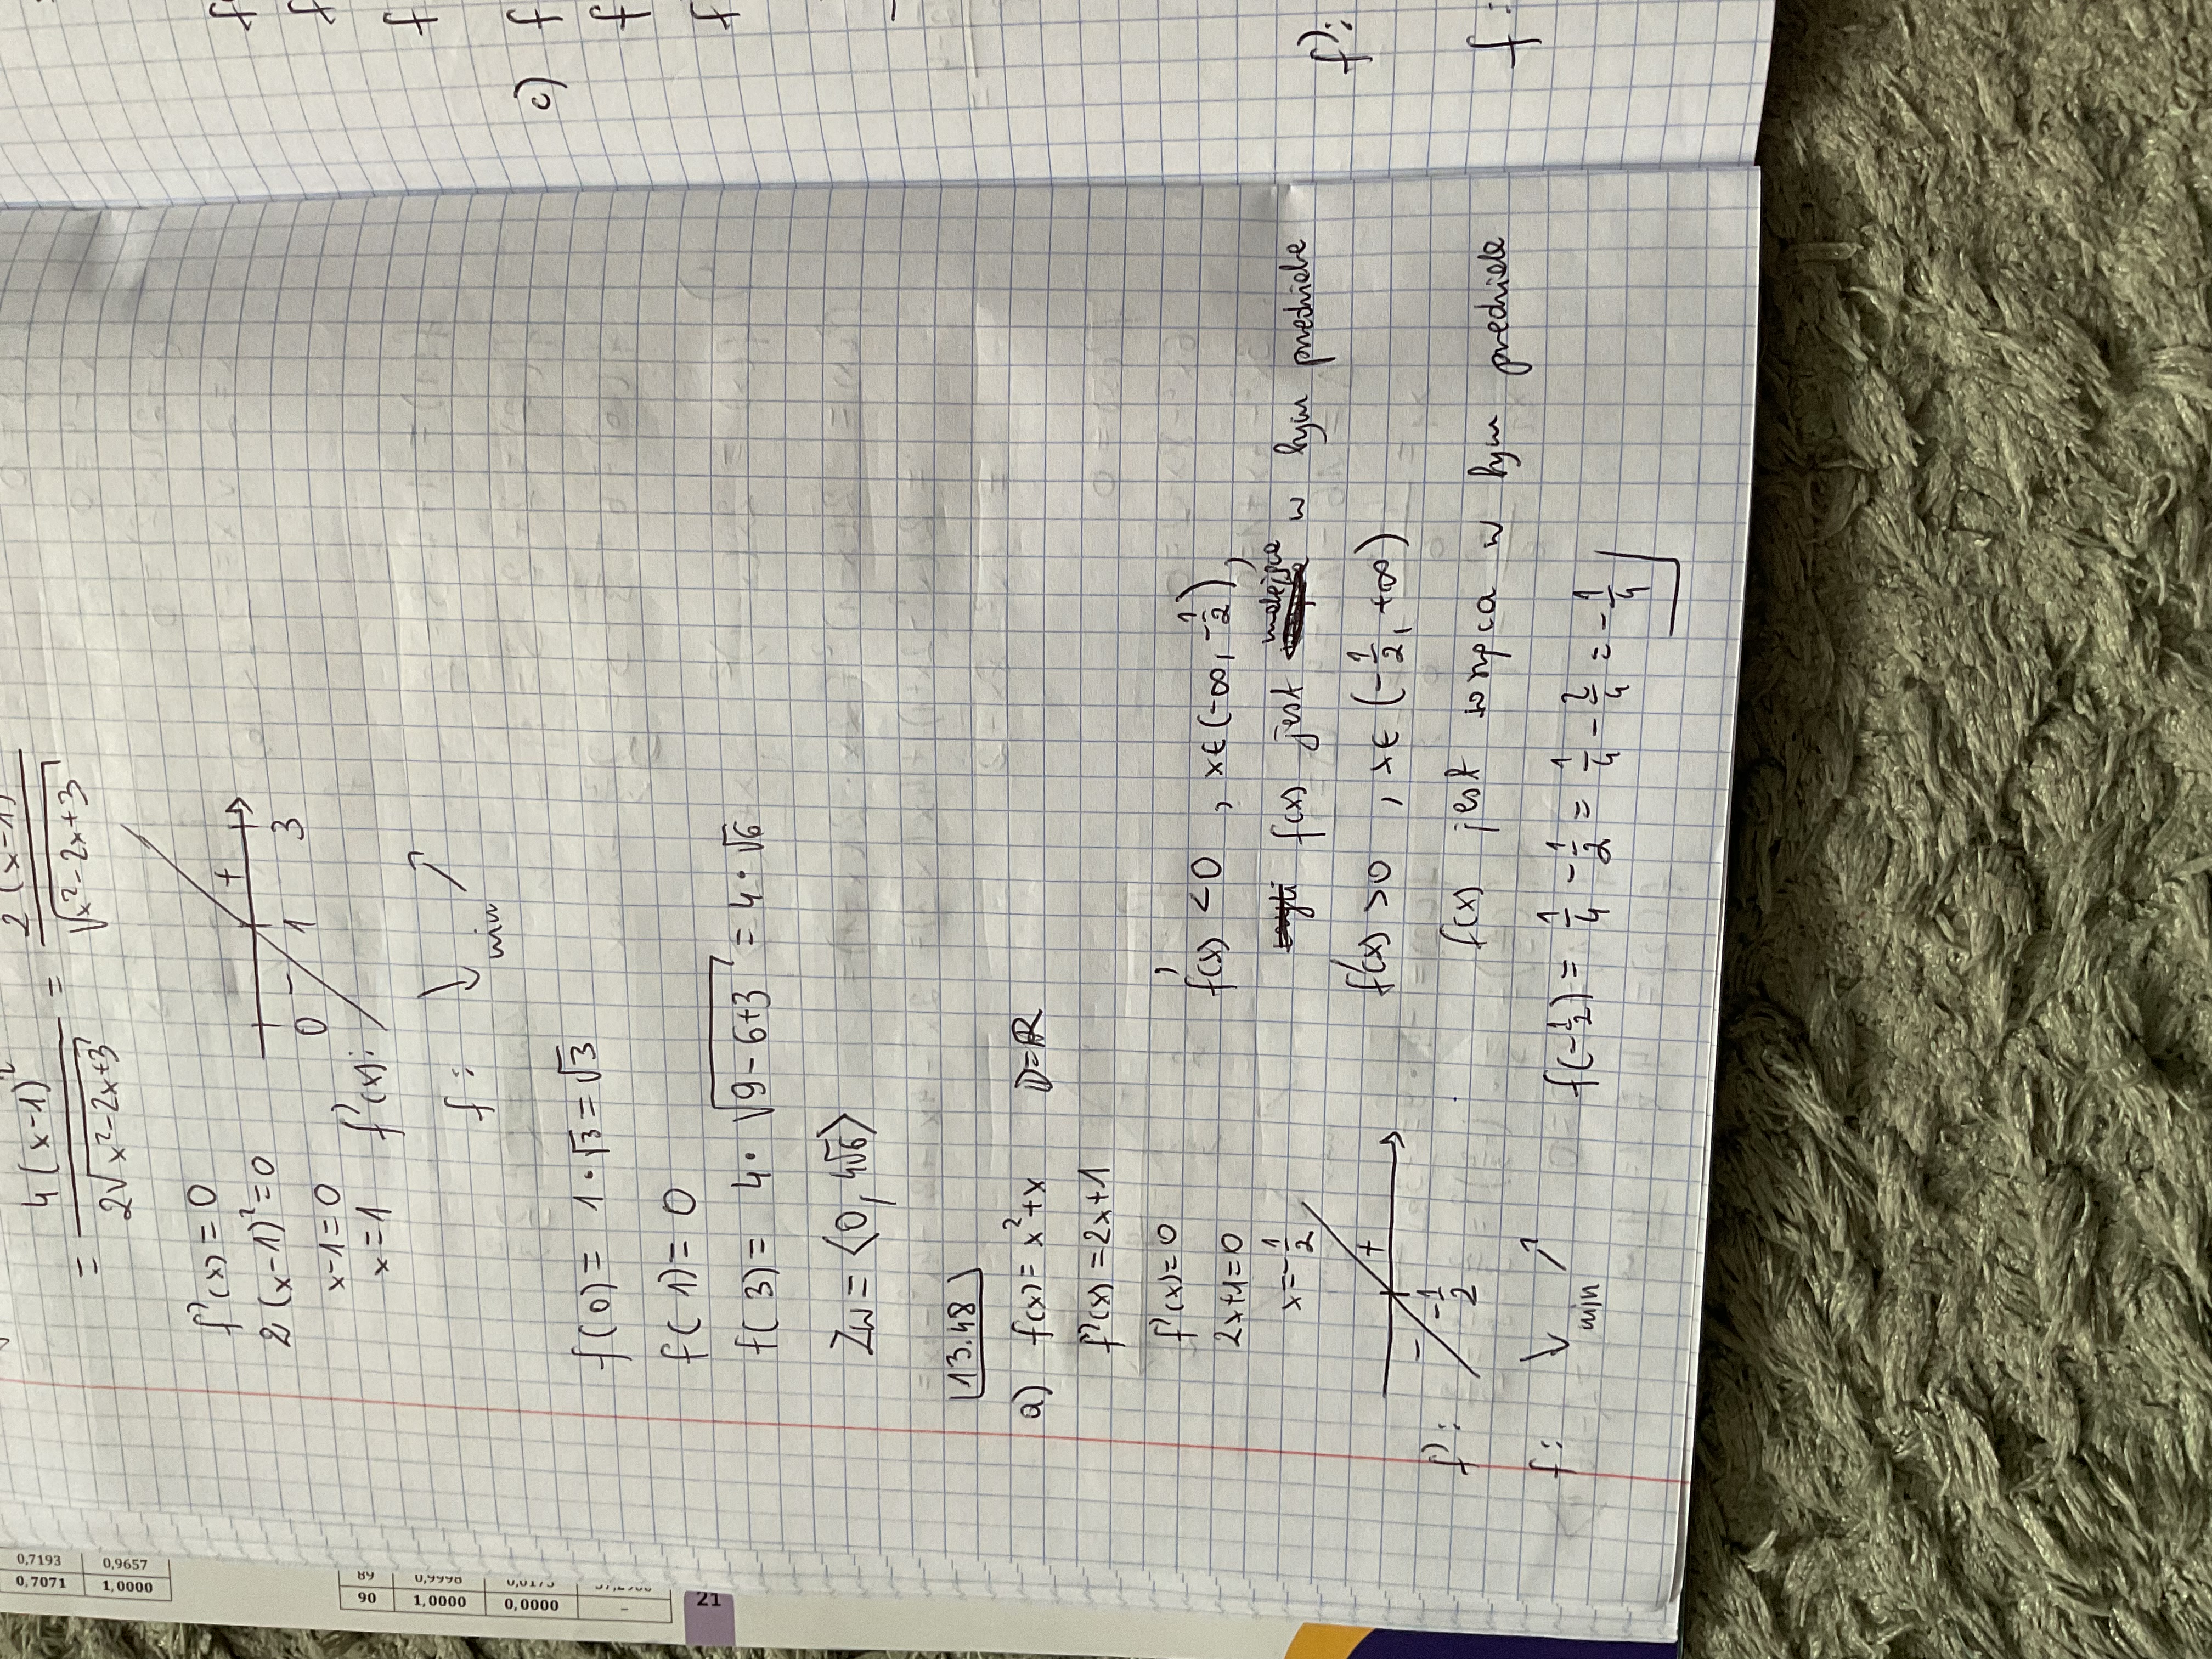 = 4(x-1)² / 2√x²-2x+3 = 2(x-1) / √x²-2x+3
f'(x) = 0
2(x-1)² = 0
x-1 = 0
x = 1
f'(x):
- +
0 1 3
f: ↘ ↗
min
f(0) = 1·√3 = √3
f(1) = 0
f(3) = 4·√9-6+3 = 4·√6
Zw = ⟨0, 4√6⟩
13.48
a) f(x) = x²+x D=R
f'(x) = 2x+1
f'(x) = 0
2x+1=0
x=-1/2
f':
- +
-1/2
f: ↘ ↗
min
f'(x) <0 , x∈(-∞, -1/2),
f(x) jest malejąca w tym przedziale
f'(x) >0 , x∈(-1/2, +∞)
f(x) jest rosnąca w tym przedziale
f(-1/2) = 1/4 - 1/2 = 1/4 - 2/4 = -1/4
c) f
f
f
f':
f:
0,7193 0,9657
0,7071 1,0000
89 0,9998 0,0175
90 1,0000 0,0000 –
21